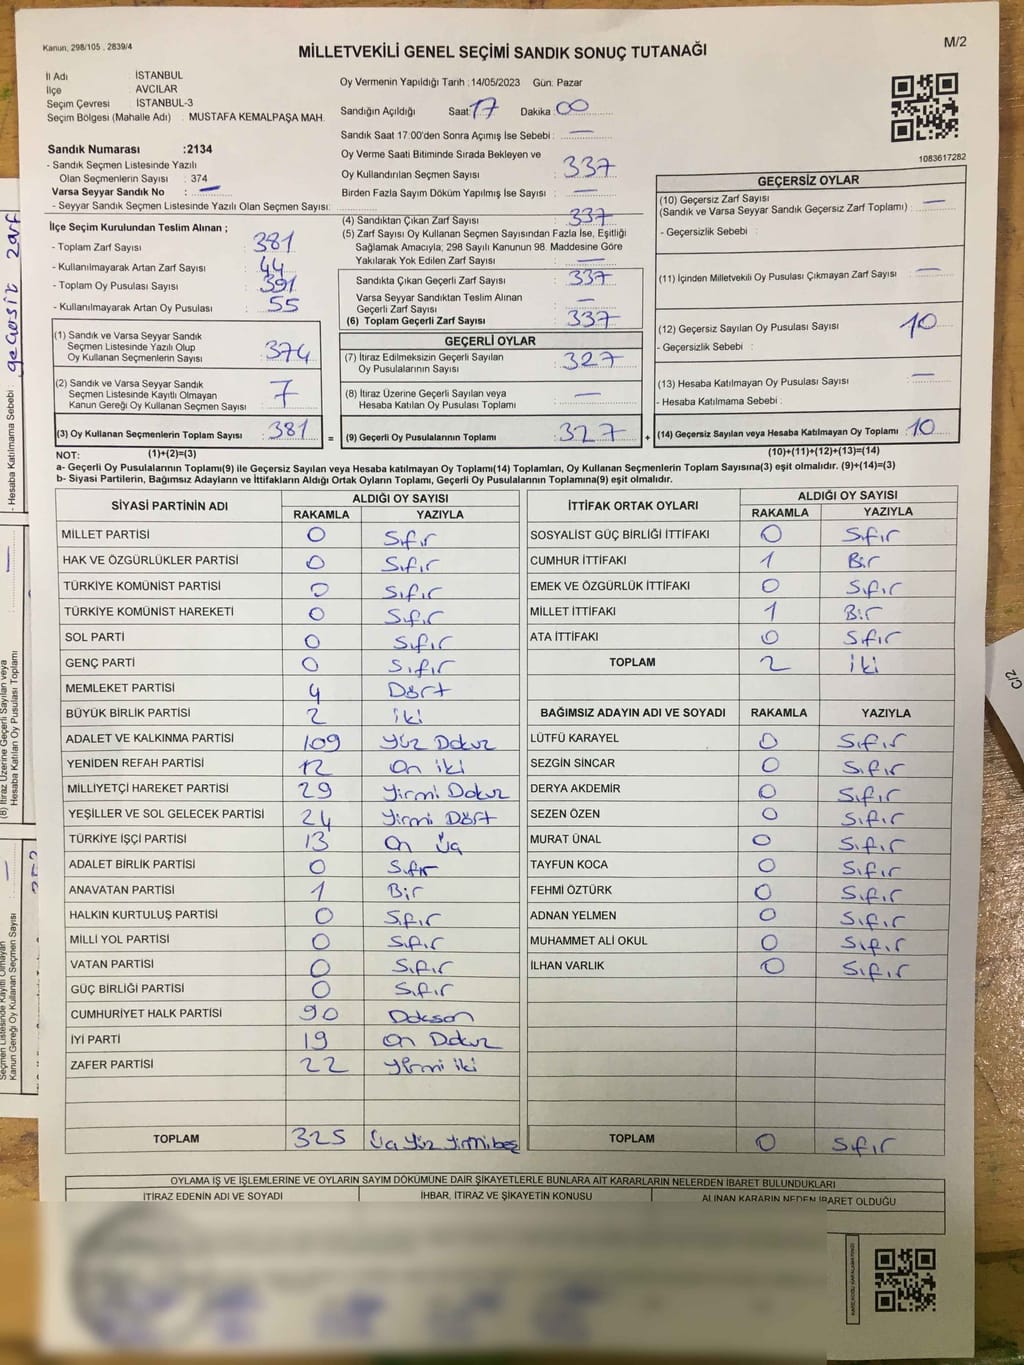 Kanun, 298/105 , 2839/4
MİLLETVEKİLİ GENEL SEÇİMİ SANDIK SONUÇ TUTANAĞI
M/2
İl Adı : İSTANBUL
İlçe : AVCILAR
Seçim Çevresi : İSTANBUL-3
Seçim Bölgesi (Mahalle Adı) : MUSTAFA KEMALPAŞA MAH.
Sandık Numarası :2134
- Sandık Seçmen Listesinde Yazılı
Olan Seçmenlerin Sayısı : 374
Varsa Seyyar Sandık No : —
- Seyyar Sandık Seçmen Listesinde Yazılı Olan Seçmen Sayısı:
Oy Vermenin Yapıldığı Tarih :14/05/2023 Gün: Pazar
Sandığın Açıldığı Saat: 17 Dakika: 00
Sandık Saat 17:00'den Sonra Açımış İse Sebebi : —
Oy Verme Saati Bitiminde Sırada Bekleyen ve
Oy Kullandırılan Seçmen Sayısı : 337
Birden Fazla Sayım Döküm Yapılmış İse Sayısı : —
1083617282
İlçe Seçim Kurulundan Teslim Alınan ;
- Toplam Zarf Sayısı : 381
- Kullanılmayarak Artan Zarf Sayısı : 44
- Toplam Oy Pusulası Sayısı : 391
- Kullanılmayarak Artan Oy Pusulası : 55
(1) Sandık ve Varsa Seyyar Sandık
Seçmen Listesinde Yazılı Olup
Oy Kullanan Seçmenlerin Sayısı : 374
(2) Sandık ve Varsa Seyyar Sandık
Seçmen Listesinde Kayıtlı Olmayan
Kanun Gereği Oy Kullanan Seçmen Sayısı : 7
(3) Oy Kullanan Seçmenlerin Toplam Sayısı : 381
(4) Sandıktan Çıkan Zarf Sayısı : 337
(5) Zarf Sayısı Oy Kullanan Seçmen Sayısından Fazla İse, Eşitliği
Sağlamak Amacıyla; 298 Sayılı Kanunun 98. Maddesine Göre
Yakılarak Yok Edilen Zarf Sayısı : —
Sandıkta Çıkan Geçerli Zarf Sayısı : 337
Varsa Seyyar Sandıktan Teslim Alınan
Geçerli Zarf Sayısı : —
(6) Toplam Geçerli Zarf Sayısı : 337
GEÇERLİ OYLAR
(7) İtiraz Edilmeksizin Geçerli Sayılan
Oy Pusulalarının Sayısı : 327
(8) İtiraz Üzerine Geçerli Sayılan veya
Hesaba Katılan Oy Pusulası Toplamı : —
= (9) Geçerli Oy Pusulalarının Toplamı : 327 +
GEÇERSİZ OYLAR
(10) Geçersiz Zarf Sayısı
(Sandık ve Varsa Seyyar Sandık Geçersiz Zarf Toplamı) : —
- Geçersizlik Sebebi :
(11) İçinden Milletvekili Oy Pusulası Çıkmayan Zarf Sayısı : —
(12) Geçersiz Sayılan Oy Pusulası Sayısı : 10
- Geçersizlik Sebebi :
(13) Hesaba Katılmayan Oy Pusulası Sayısı : —
- Hesaba Katılmama Sebebi :
(14) Geçersiz Sayılan veya Hesaba Katılmayan Oy Toplamı : 10
NOT: (1)+(2)=(3) (10)+(11)+(12)+(13)=(14)
a- Geçerli Oy Pusulalarının Toplamı(9) ile Geçersiz Sayılan veya Hesaba katılmayan Oy Toplamı(14) Toplamları, Oy Kullanan Seçmenlerin Toplam Sayısına(3) eşit olmalıdır. (9)+(14)=(3)
b- Siyasi Partilerin, Bağımsız Adayların ve İttifakların Aldığı Ortak Oyların Toplamı, Geçerli Oy Pusulalarının Toplamına(9) eşit olmalıdır.
SİYASİ PARTİNİN ADI ALDIĞI OY SAYISI
RAKAMLA YAZIYLA
MİLLET PARTİSİ 0 Sıfır
HAK VE ÖZGÜRLÜKLER PARTİSİ 0 Sıfır
TÜRKİYE KOMÜNİST PARTİSİ 0 Sıfır
TÜRKİYE KOMÜNİST HAREKETİ 0 Sıfır
SOL PARTİ 0 Sıfır
GENÇ PARTİ 0 Sıfır
MEMLEKET PARTİSİ 4 Dört
BÜYÜK BİRLİK PARTİSİ 2 iki
ADALET VE KALKINMA PARTİSİ 109 Yüz Dokuz
YENİDEN REFAH PARTİSİ 12 On iki
MİLLİYETÇİ HAREKET PARTİSİ 29 Yirmi Dokuz
YEŞİLLER VE SOL GELECEK PARTİSİ 24 Yirmi Dört
TÜRKİYE İŞÇİ PARTİSİ 13 On Üç
ADALET BİRLİK PARTİSİ 0 Sıfır
ANAVATAN PARTİSİ 1 Bir
HALKIN KURTULUŞ PARTİSİ 0 Sıfır
MİLLİ YOL PARTİSİ 0 Sıfır
VATAN PARTİSİ 0 Sıfır
GÜÇ BİRLİĞİ PARTİSİ 0 Sıfır
CUMHURİYET HALK PARTİSİ 90 Doksan
İYİ PARTİ 19 On Dokuz
ZAFER PARTİSİ 22 Yirmi iki
TOPLAM 325 Üç Yüz Yirmi beş
İTTİFAK ORTAK OYLARI ALDIĞI OY SAYISI
RAKAMLA YAZIYLA
SOSYALİST GÜÇ BİRLİĞİ İTTİFAKI 0 Sıfır
CUMHUR İTTİFAKI 1 Bir
EMEK VE ÖZGÜRLÜK İTTİFAKI 0 Sıfır
MİLLET İTTİFAKI 1 Bir
ATA İTTİFAKI 0 Sıfır
TOPLAM 2 iki
BAĞIMSIZ ADAYIN ADI VE SOYADI RAKAMLA YAZIYLA
LÜTFÜ KARAYEL 0 Sıfır
SEZGİN SİNCAR 0 Sıfır
DERYA AKDEMİR 0 Sıfır
SEZEN ÖZEN 0 Sıfır
MURAT ÜNAL 0 Sıfır
TAYFUN KOCA 0 Sıfır
FEHMİ ÖZTÜRK 0 Sıfır
ADNAN YELMEN 0 Sıfır
MUHAMMET ALİ OKUL 0 Sıfır
İLHAN VARLIK 0 Sıfır
TOPLAM 0 Sıfır
OYLAMA İŞ VE İŞLEMLERİNE VE OYLARIN SAYIM DÖKÜMÜNE DAİR ŞİKAYETLERLE BUNLARA AİT KARARLARIN NELERDEN İBARET BULUNDUKLARI
İTİRAZ EDENİN ADI VE SOYADI İHBAR, İTİRAZ VE ŞİKAYETİN KONUSU ALINAN KARARIN NEDEN İBARET OLDUĞU
- Hesaba Katılmama Sebebi : geçersiz zarf
(8) İtiraz Üzerine Geçerli Sayılan veya
Hesaba Katılan Oy Pusulası Toplamı : —
Seçmen Listesinde Kayıtlı Olmayan
Kanun Gereği Oy Kullanan Seçmen Sayısı : —
C/2